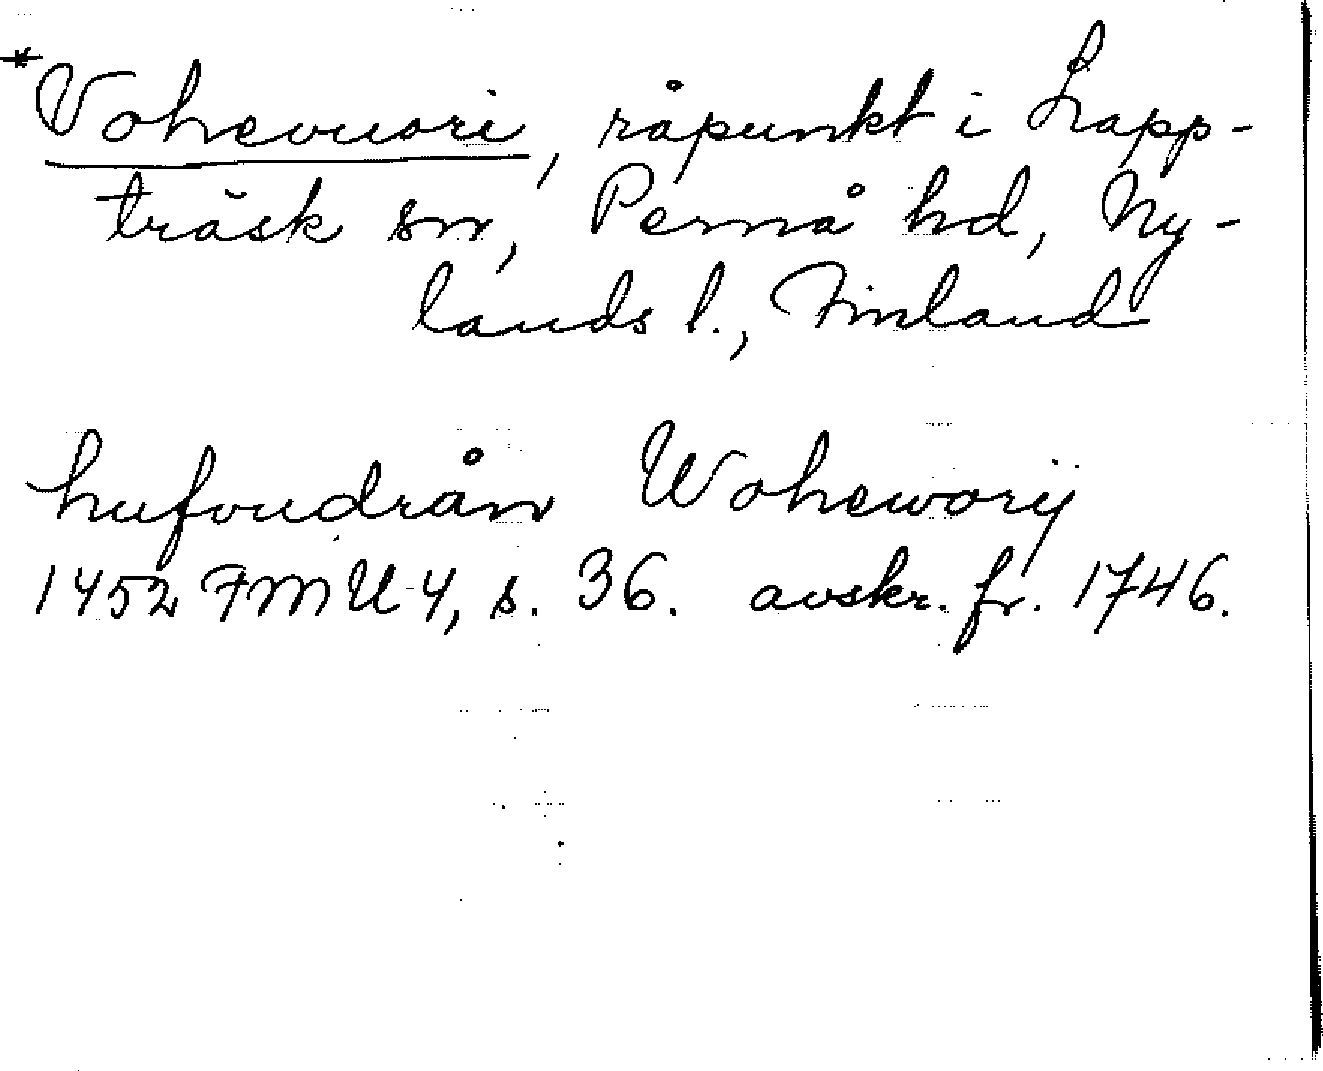 *Vohevuori, råpunkt i Lapp-
träsk sn, Pernå hd, Ny-
lands l., Finland
hufvudrån Woheworij
1452 FMU 4, s. 36. avskr. fr. 1746.